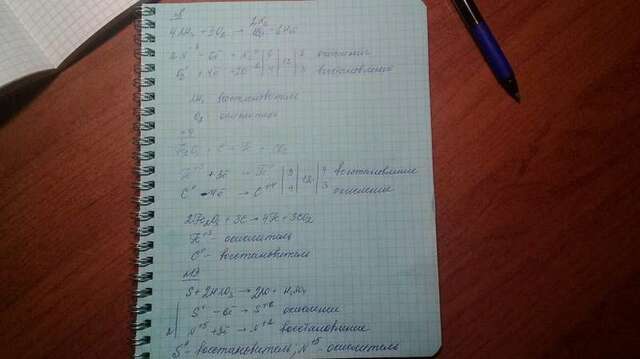 2N₂
4NH₃ + 3O₂ → + 6H₂O
окисление
восстановление
NH₃ восстановитель
O₂ окислитель
Fe₂O₃ + C → Fe + CO₂
Fe⁺³ + 3ē → Fe⁰ | 3 | 12 | 4 восстановление
C⁰ - 4ē → C⁺⁴ | 4 | | 3 окисление
2Fe₂O₃ + 3C → 4Fe + 3CO₂
Fe⁺³ - окислитель
C⁰ - восстановитель
S + 2HNO₃ → 2NO + H₂SO₄
S⁰ - 6ē → S⁺⁶ окисление
2 | N⁺⁵ + 3ē → N⁺² восстановление
S⁰ - восстановитель; N⁺⁵ - окислитель